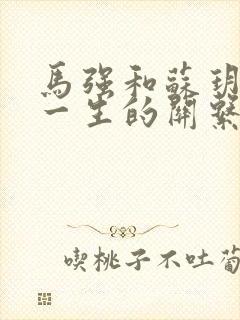 馬強和蘇玥
一生的關繫
喫桃子不吐葡